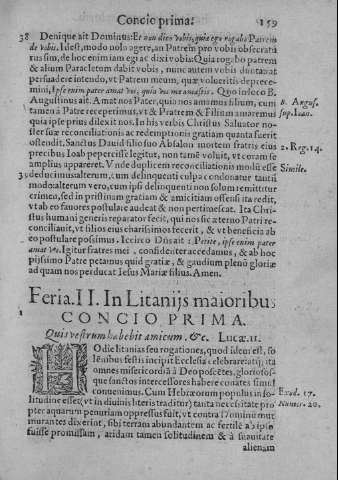 Concio prima: 159
38 Denique ait Dominus: Et non dico vobis, quia ego rogabo Patrem
de vobis. Id est, modo nolo agere, an Patrem pro vobis obsecraturus sim,
de hoc enim iam egi ac dixi vobis: Quia rogabo patrem
& alium Paracletum dabit vobis, nunc autem vobis duntaxat
persuadere intendo, vt Patrem meum, quæ volueritis deprecemini,
Ipse enim pater amat vos, quia vos me amastis. Quo in loco B.
Augustinus ait. Amat nos Pater, quia nos amamus filium, cum
B. Augus.
tamen à Patre receperimus, vt & Patrem & Filium amaremus
sup. Ioan.
quia ipse prius dilexit nos. In his verbis Christus Saluator noster
suæ reconciliationis ac redemptionis gratiam quanta fuerit
ostendit. Sanctus Dauid filio suo Absalon mortem fratris eius
2. Reg. 14.
precibus Ioab pepercisse legitur, non tamè voluit, vt coram se
amplius appareret. Vnde duplicem reconciliationis modū esse
Simile.
deducimus alterum, cum delinquenti culpa condonatur tantū
modo: alterum vero, cum ipsi delinquenti non solum remittitur
crimen, sed in pristinam gratiam & amicitiam offensi ita redit,
vt ab eo fauores postulare audeat & non pertimescat. Ita Christus
humani generis reparator fecit, qui nos sic æterno Patri reconciliauit,
vt filios eius charissimos fecerit, & vt beneficia ab
eo postulare possimus. Iccirco Dñs ait: Petite, ipse enim pater
amat vos. Igitur fratres mei, confidenter accedamus, & ab hoc
pijssimo Patre petamus quid gratiæ, & gaudium plenū gloriæ
ad quam nos perducat Iesus Mariæ filius. Amen.
Feria. II. In Litanijs maioribus
CONCIO PRIMA.
Quis vestrum habebit amicum. &c. Lucæ. 11.
1 HOdie litanias seu rogationes, quod idem est, solènibus
festis incipit Ecclesia celebrare tatū; ita
omnes misericordiā à Deo poscētes, gloriososque
sanctos intercessores habere conātes simul
conuenimus. Cum Hebræorum populus in solitudine
Exod. 17.
esset (vt in diuinis literis traditur) tanta necessitate propter
Numer. 20.
aquarum penuriam oppressus fuit, vt contra Dominū murmurantes
dixerint, sibi terram abundantem ac fertilē ab ipso
fuisse promissam, aridam tamen solitudinem & à suauitate
alienam